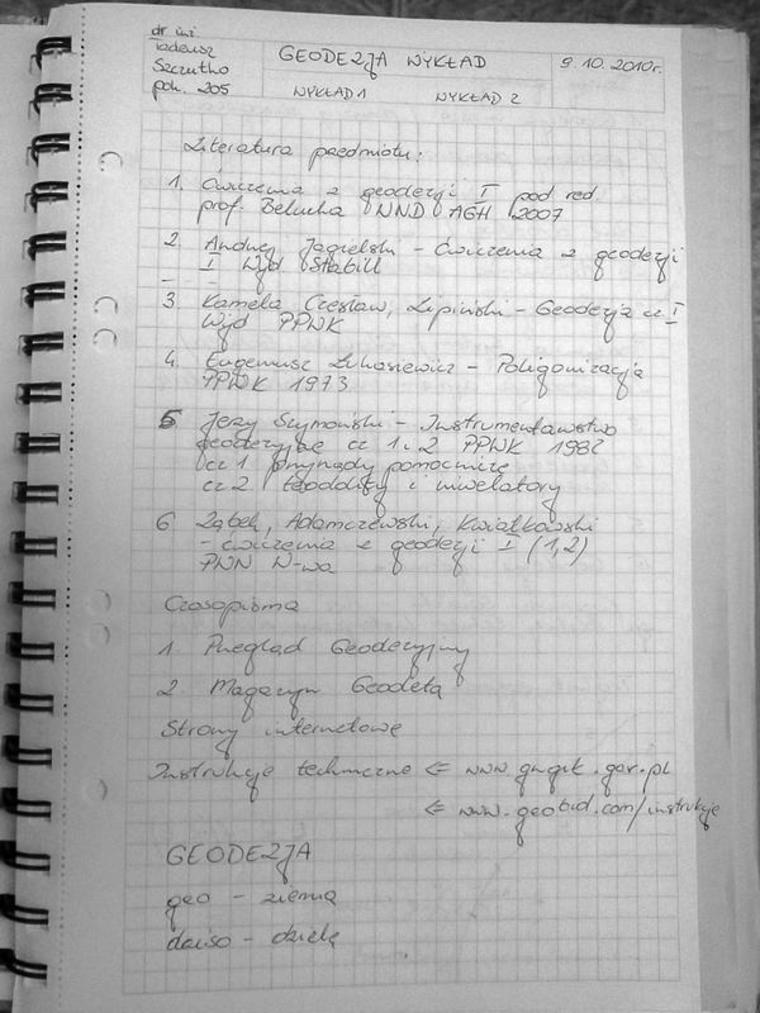 dr inż.
Tadeusz
Szczutko
pok. 205
GEODEZJA WYKŁAD
9.10.2010r.
WYKŁAD 1 WYKŁAD 2
Literatura przedmiotu:
1. Ćwiczenia z geodezji I pod red.
prof. Belucha WND AGH 2007
2. Andrzej Jagielski - Ćwiczenia z geodezji
I Wyd. Stabill
3. Kamela Czesław, Lipiński - Geodezja cz I
Wyd PPWK
4. Eugeniusz Łukasiewicz - Poligonizacja
PPWK 1973
5 Jerzy Szymoński - Instrumentawstwo
geodezyjne cz 1 i 2 PPWK 1982
cz 1 przyrządy pomocnicze
cz 2. teodolity i niwelatory
6 Ząbek, Adamczewski, Kwiatkowski
- ćwiczenia z geodezji I (1,2)
PWN W-wa
Czasopisma
1. Przegląd Geodezyjny
2. Magazyn Geodeta
Strony internetowe
Instrukcje techniczne ⇐ www.gugik.gov.pl
⇐ www.geobid.com/instrukcje
GEODEZJA
geo - ziemia
daiso - dzielę